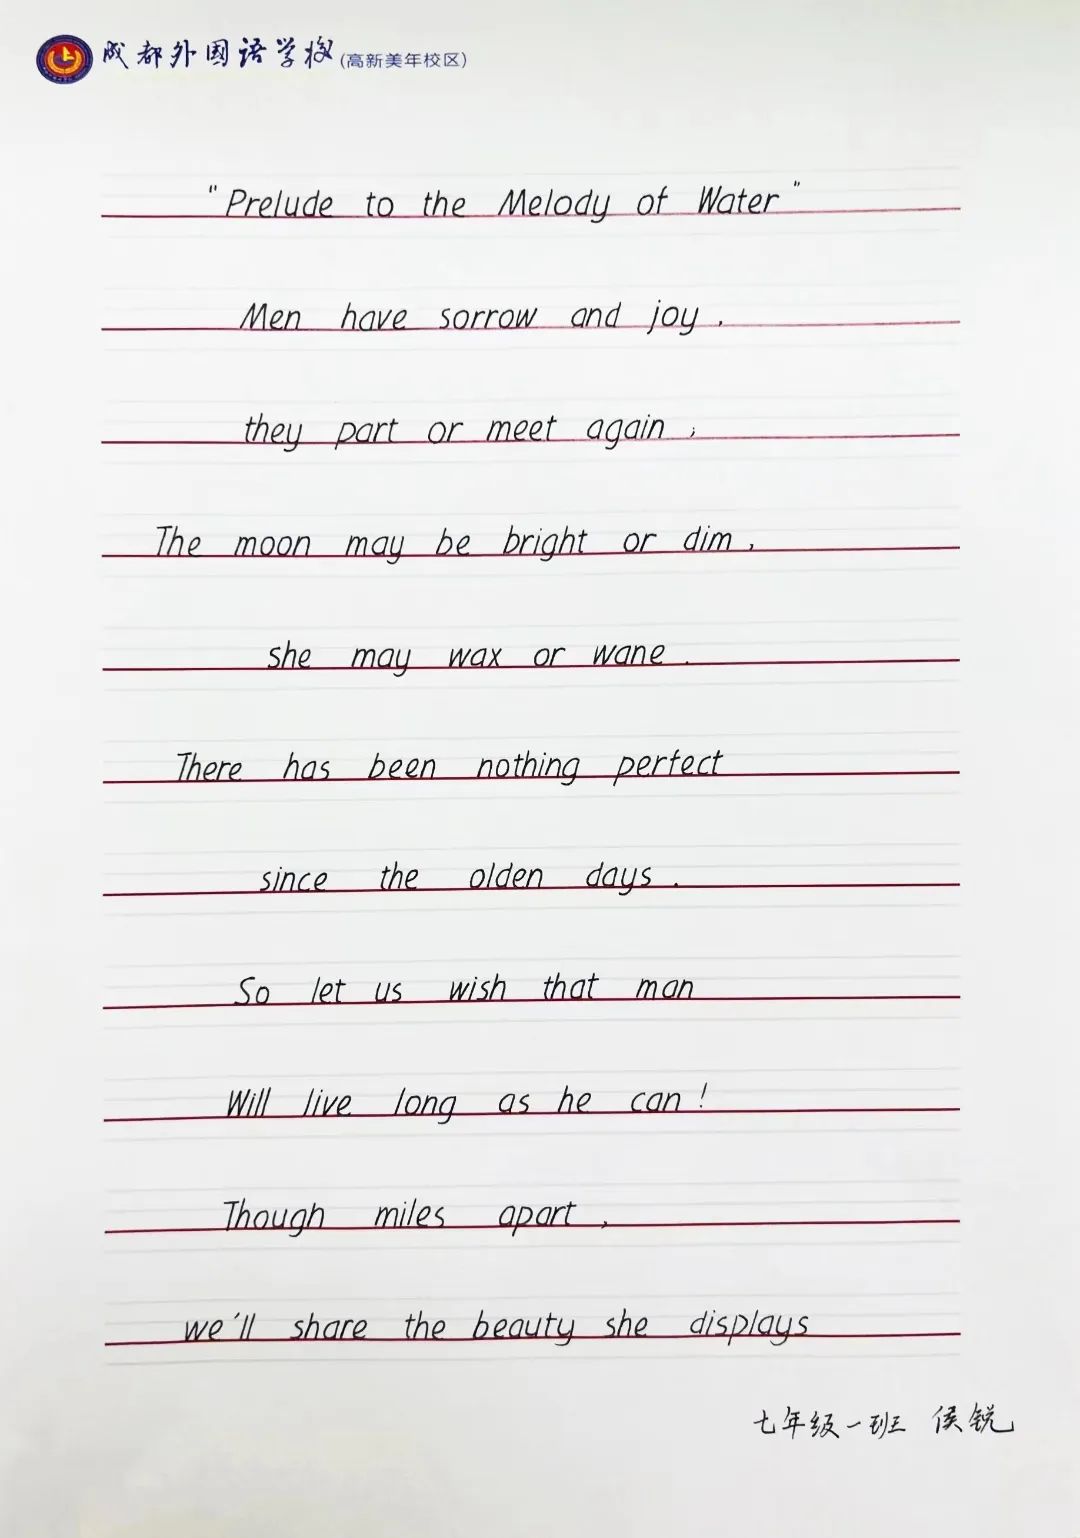 成都外国语学校(高新美年校区)
"Prelude to the Melody of Water"
Men have sorrow and joy,
they part or meet again;
The moon may be bright or dim,
she may wax or wane.
There has been nothing perfect
since the olden days.
So let us wish that man
Will live long as he can!
Though miles apart,
we'll share the beauty she displays
七年级一班 侯锐